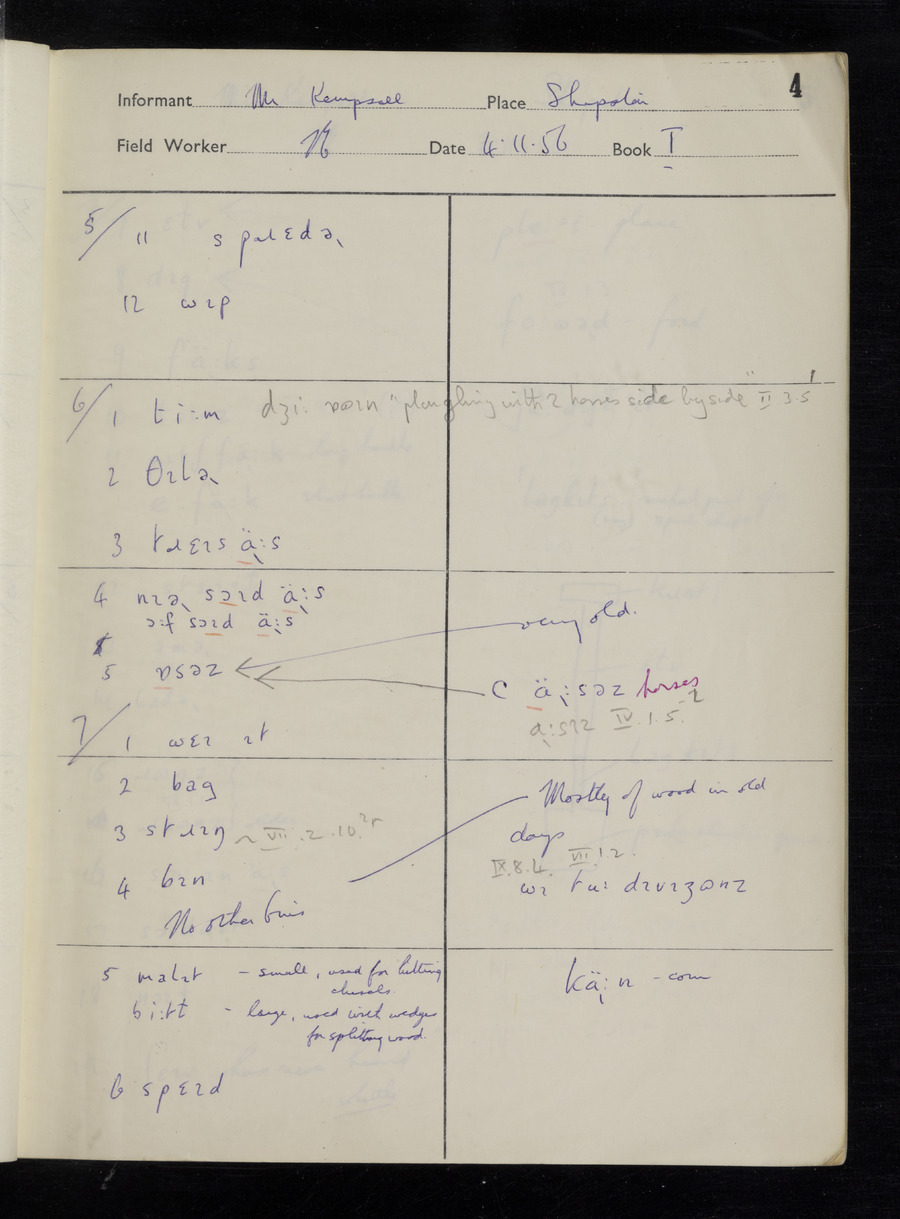 4
Informant Mr Kempsell Place
Field Worker Date 4.11.56 Book I
5/ 11
12 wɪp
6/ 1 ti:m "ploughing with 2 horses side by side" II 3.5
2 θɪlə
3
4 nɪə sɔɪd ä:s
ɔ:f sɔɪd ä:s
very old.
5 ɒsəz
C ä:səz horses
a:sɪz IV.1.5.2
7/ 1 wɛɪ ɪt
2 bag
Mostly of wood in old
days
3 stɹɪŋ ~ VII.2.10.
IX.8.4. VII.1.2.
4 bɪn
wɪ tu: dɪvɪʒənz
No other bins
5 malɪt - small, used for hitting
chisels.
kä:n - corn
bi:tɫ - large, used with wedges
for splitting wood.
6 spɛɪd